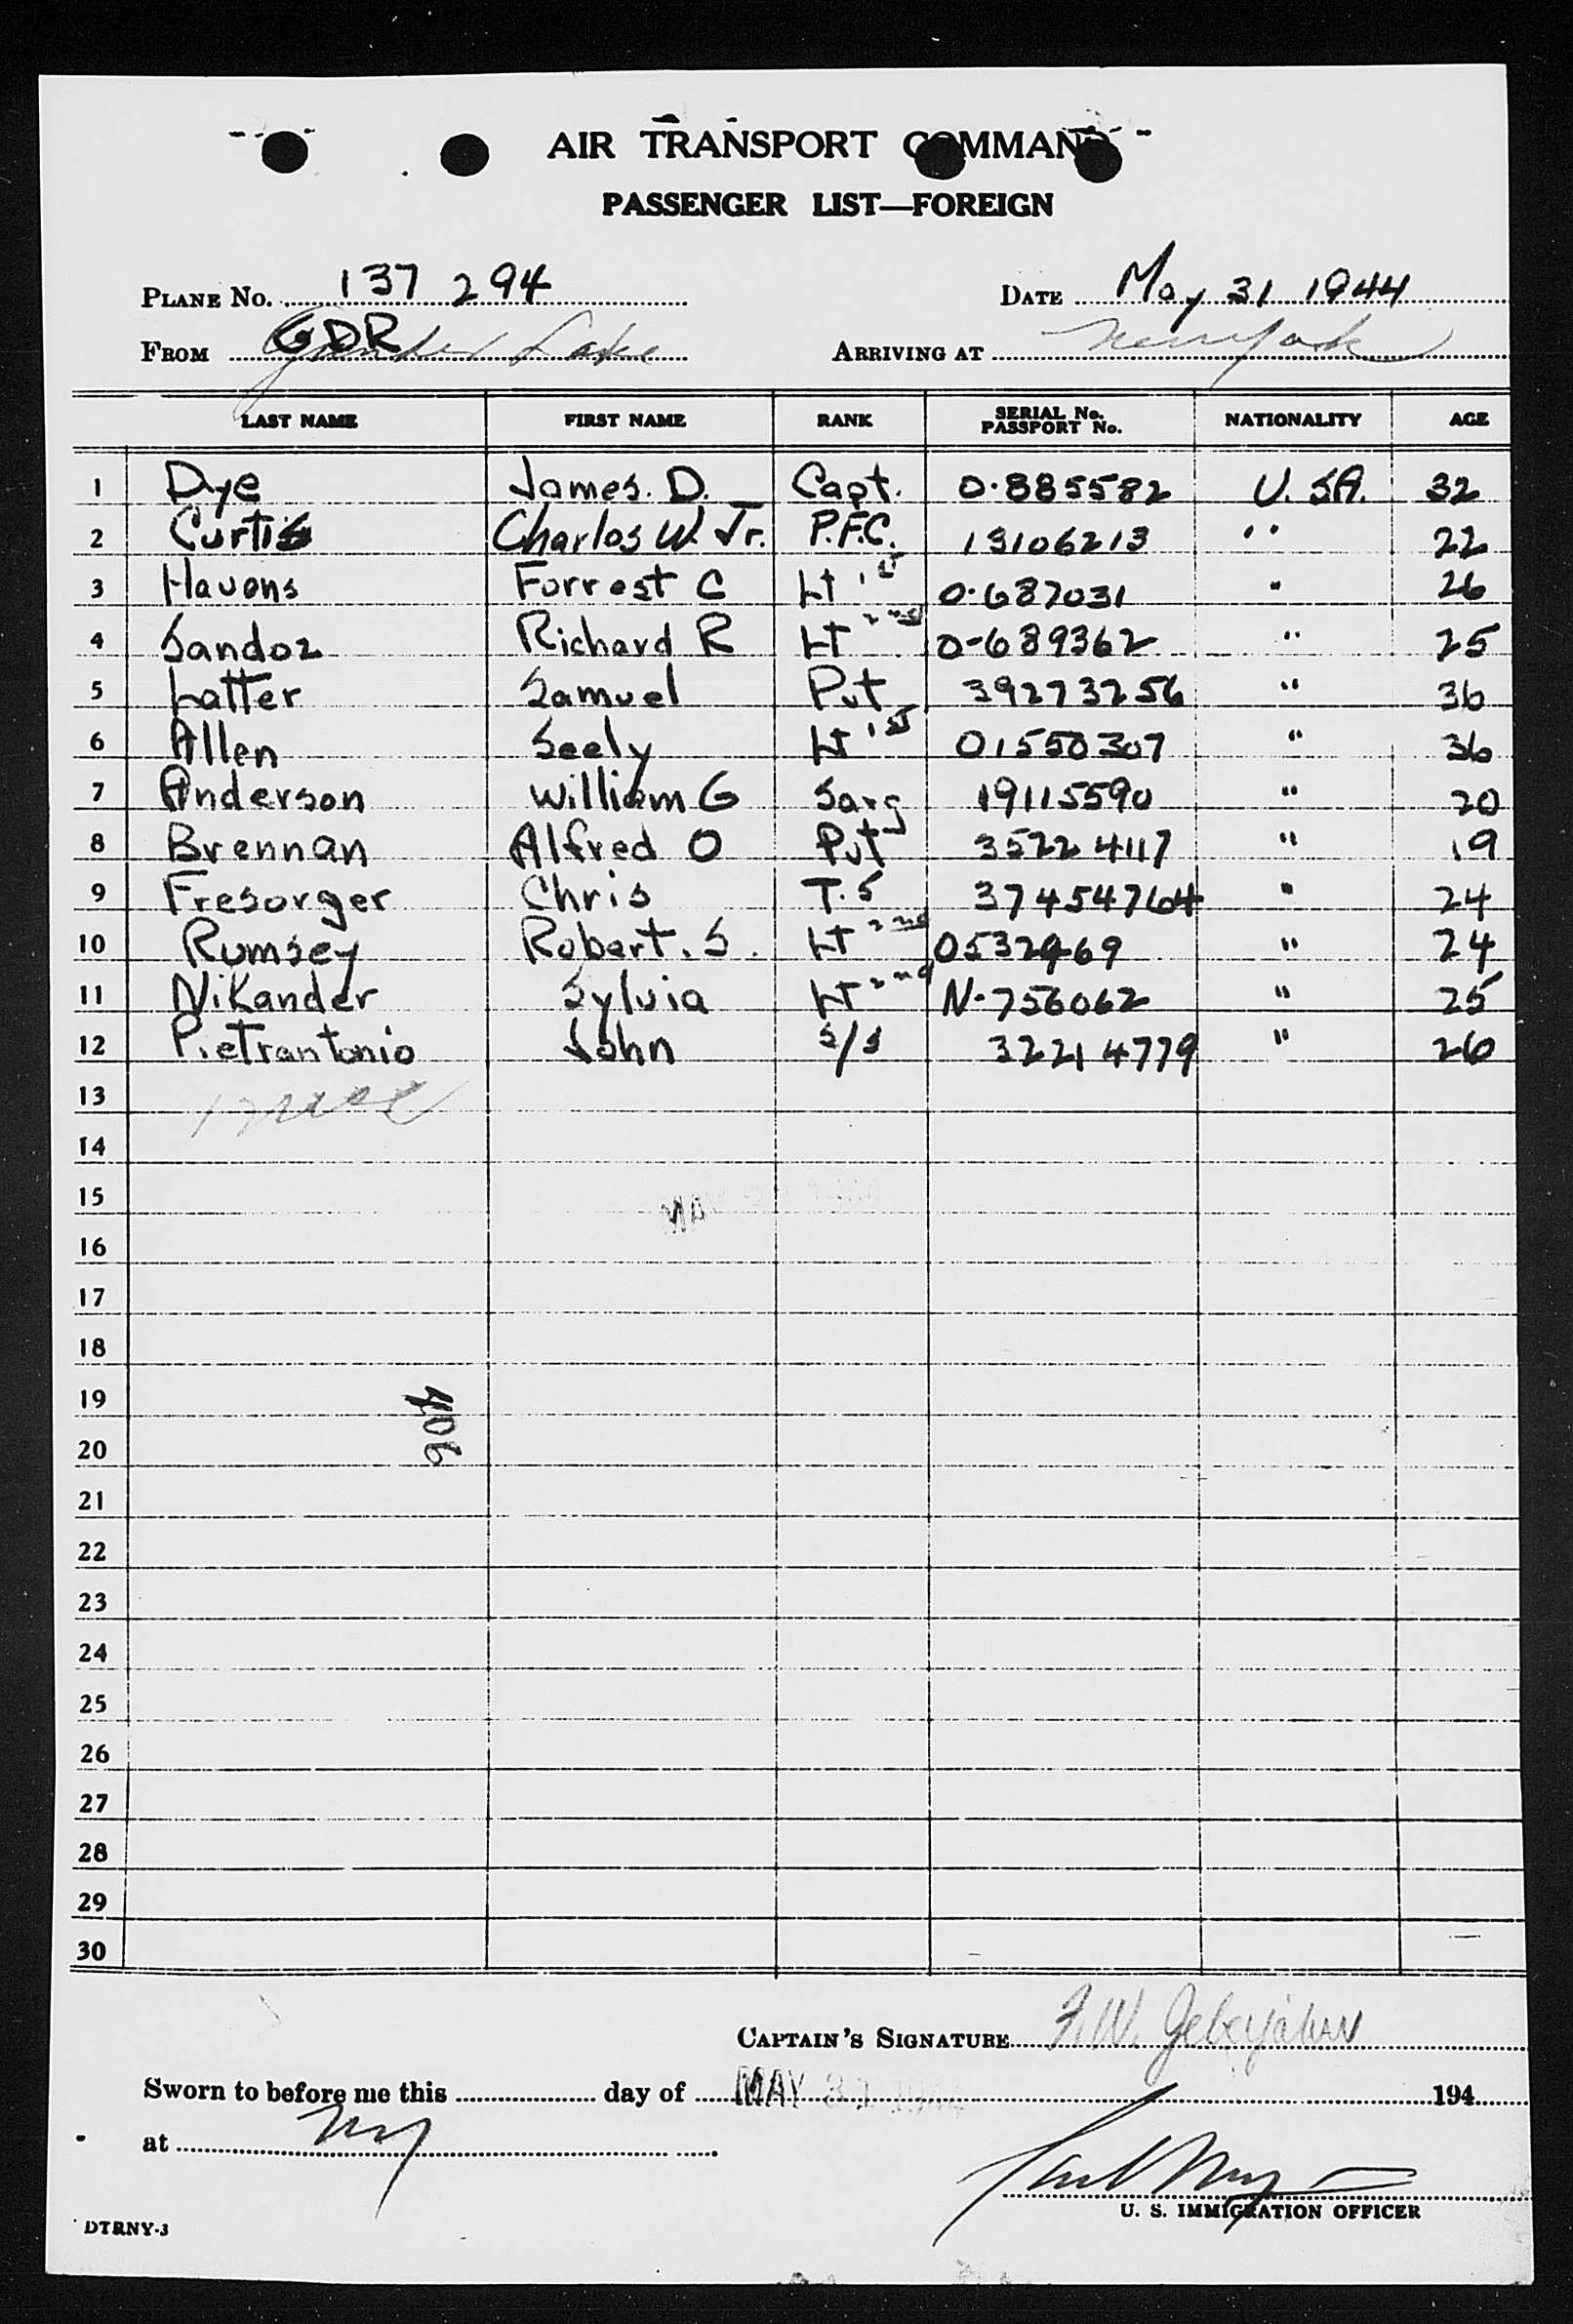 AIR TRANSPORT COMMAND
PASSENGER LIST—FOREIGN
PLANE No. 137 294 DATE May 31 1944
FROM GDR Gander Lake ARRIVING AT New York
LAST NAME FIRST NAME RANK SERIAL No. PASSPORT No. NATIONALITY AGE
1 Dye James. D. Capt. 0.885582 U.SA. 32
2 Curtis Charles W. Jr. P.F.C. 13106213 " 22
3 Havens Forrest C Lt 1st 0.687031 " 26
4 Sandoz Richard R Lt 2nd 0-689362 " 25
5 Latter Samuel Pvt 39273256 " 36
6 Allen Seely Lt 1st 01550307 " 36
7 Anderson William G Sarg 19115590 " 20
8 Brennan Alfred O Pvt 35224117 " 19
9 Fresorger Chris T.5 37454764 " 24
10 Rumsey Robert. S. Lt 2nd 0532469 " 24
11 Nikander Sylvia Lt 2nd N-756062 " 25
12 Pietrantonio John S/S 32214779 " 26
13
14
15
16
17
18
19
406
20
21
22
23
24
25
26
27
28
29
30
CAPTAIN'S SIGNATURE F.W.
Sworn to before me this day of MAY 31 1944 194
at NY
U. S. IMMIGRATION OFFICER
DTRNY-3